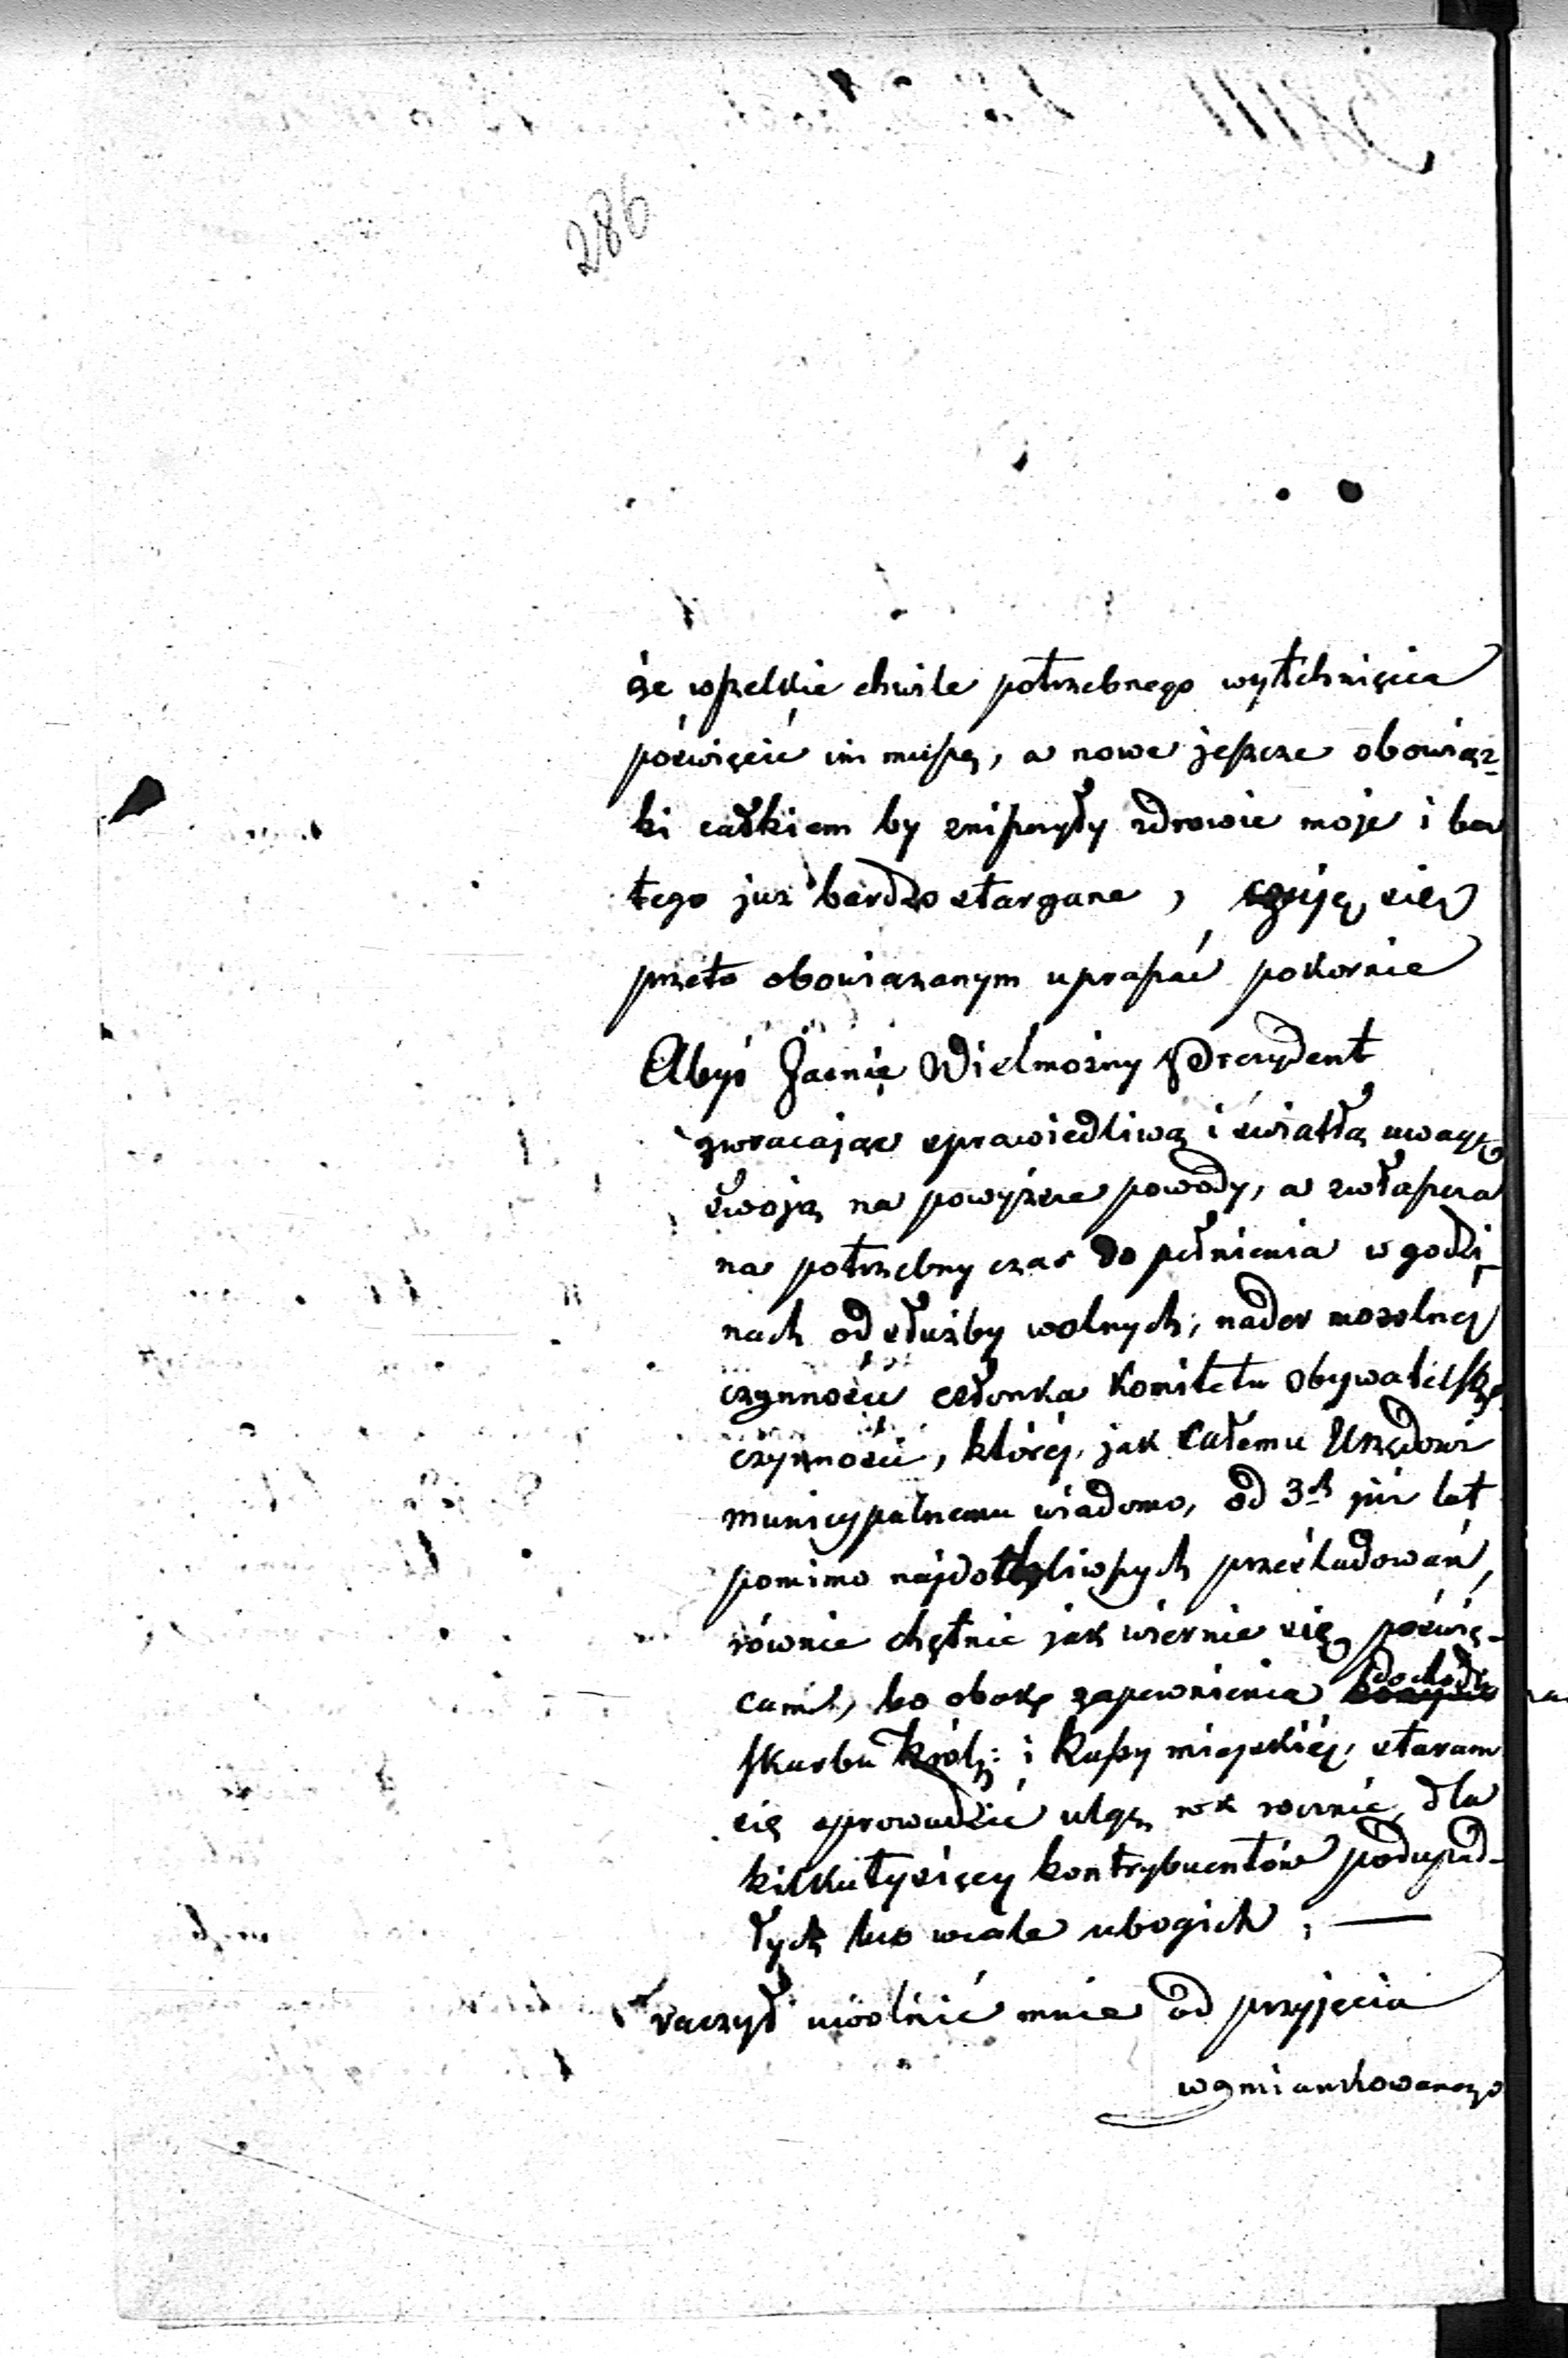 286
że wszelkie chwile potrzebnego wytchnięcia
poświęcić im muszę, a nowe jeszcze obowiąz-
ki całkiem by zniszczyły zdrowie moje i bez
tego już bardzo stargane, czuję się
przeto obowiązanym upraszać pokornie
Abyś Jaśnie Wielmożny Prezydent
zwracając sprawiedliwą i światłą uwagę
swoją na powyższe powody, a zwłaszcza
na potrzebny czas do pełnienia w godzi-
nach od służby wolnych, nader mozolnej
czynności członka Komitetu Obywatelsk:
czynności, której, jak Całemu Urzędowi
municypalnemu wiadomo, od 3ch już lat
pomimo najdotkliwszych prześladowań,
równie chętnie jak wiernie się poświę-
cam, bo obok zapewnienia dochodu
skarbu Król: i Kassy miejskiej, staram
się sprowadzić ulgę rok rocznie, dla
kilkutysięcy kontrybuentów podupad-
łych lub wcale ubogich; —
raczył uwolnić mnie od przyjęcia
wzmiankowanego